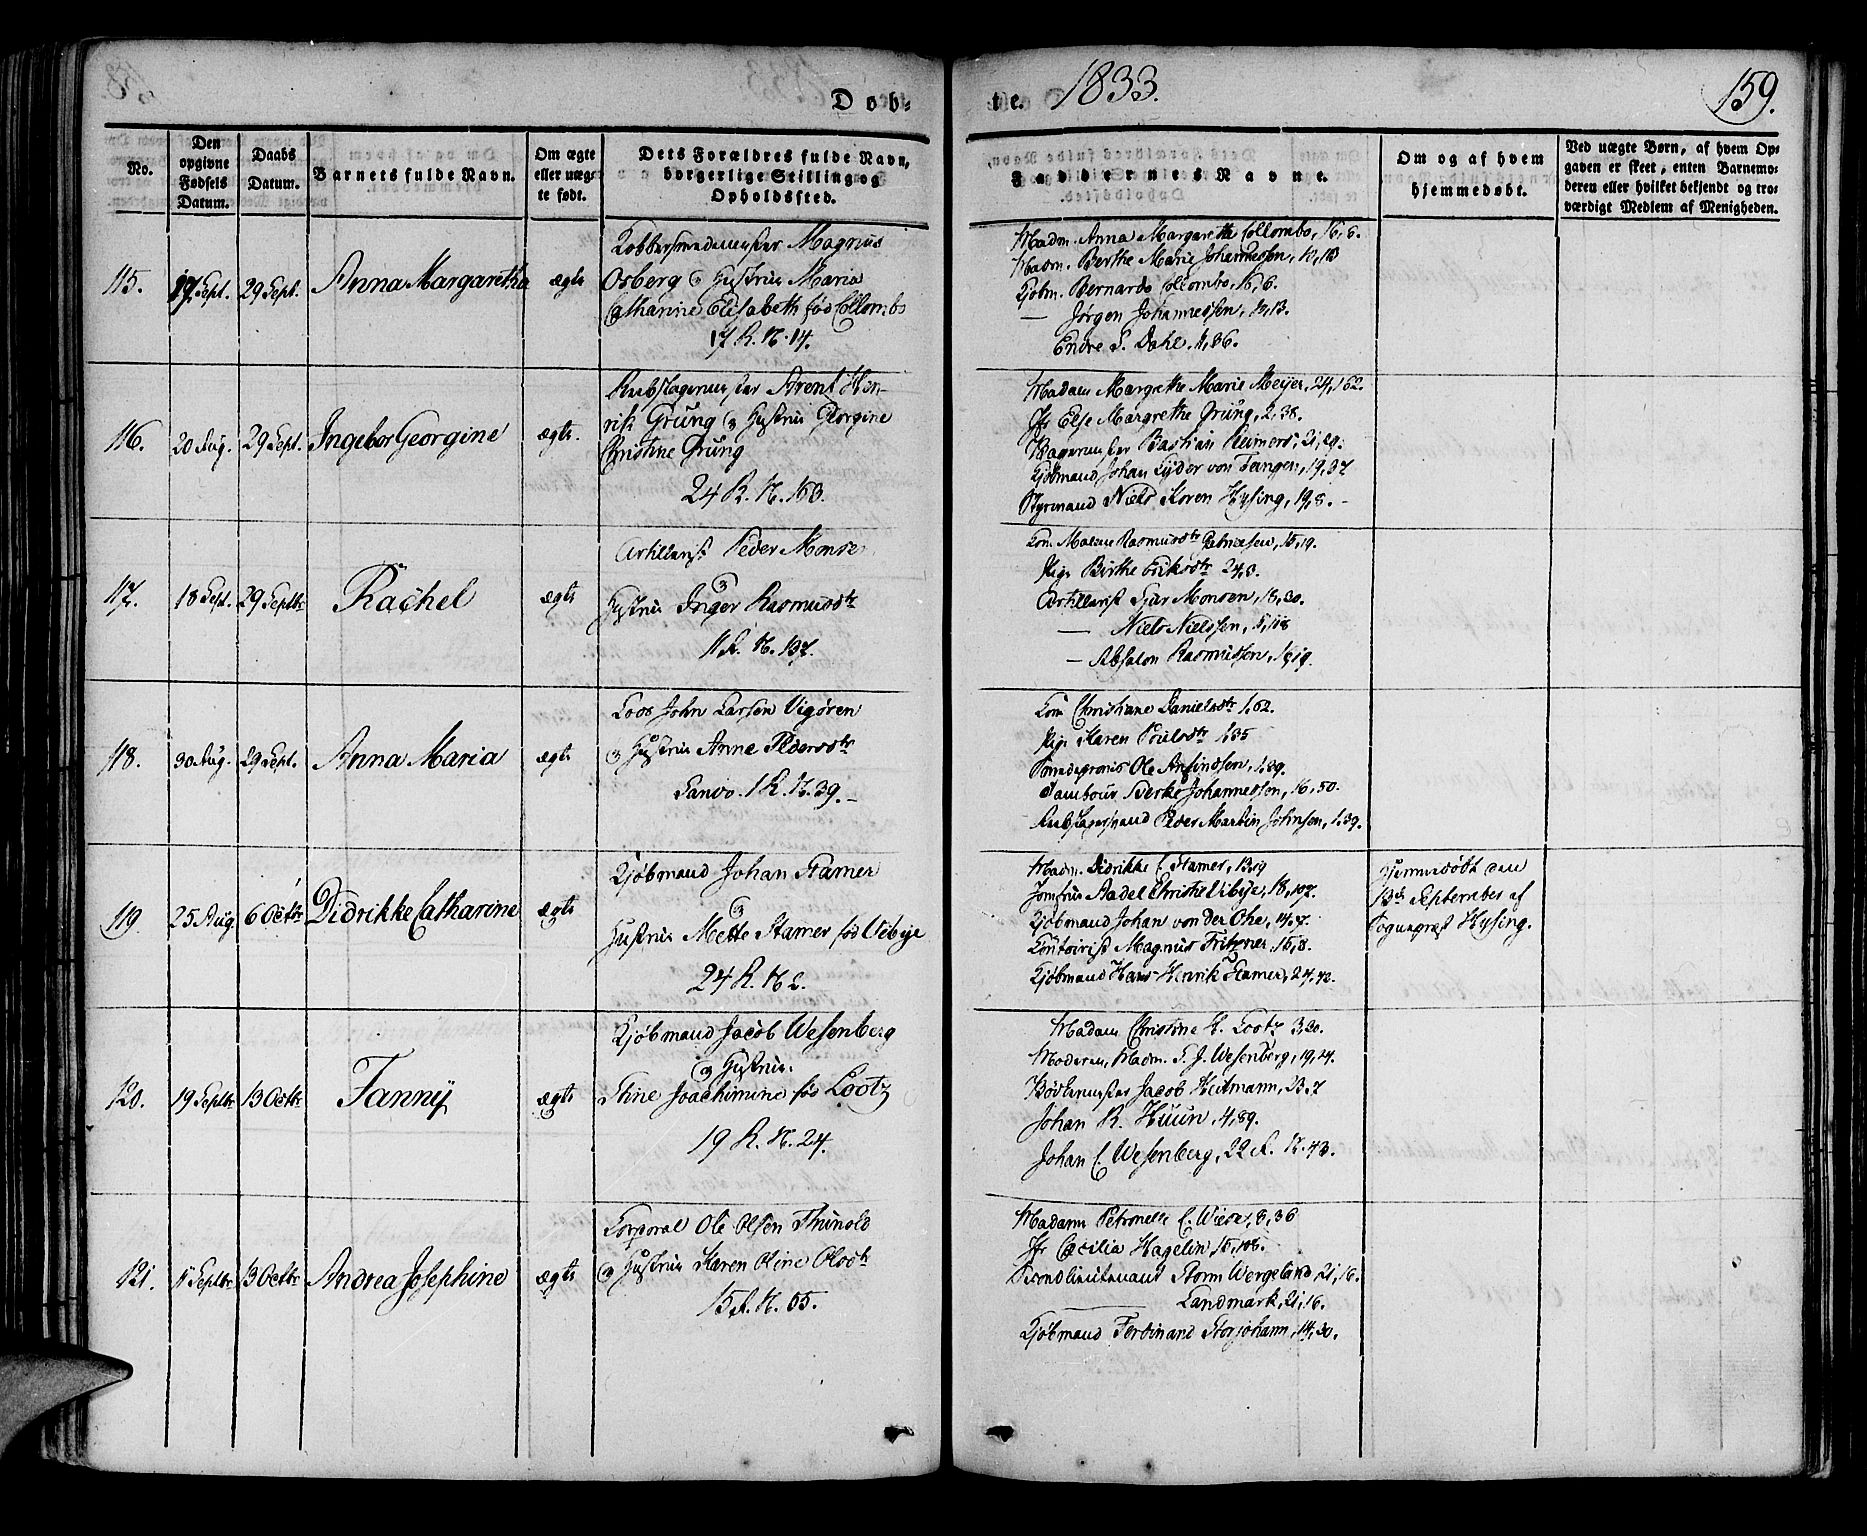 Døb-
te. 1833.
159.
No.
Den opgivne Fødsels Datum.
Daabs Datum.
Barnets fulde Navn.
Om ægte eller uægte født.
Dets Forældres fulde Navn, borgerlige Stilling og Opholdssted.
Faddernes Navne.
Om og af hvem hjemmedøbt.
Ved uægte Børn, af hvem Opgaven er skeet, enten Barnemoderen eller hvilket bekjendt og troværdigt Medlem af Menigheden.
115. 17 Sept. 29 Sept. Anna Margaretha ægte
Kobbersmedemester Magnus
Osberg og Hustrue Maria
Catharine Elisabeth fød Collombo
17 R. N. 14.
Madm. Anna Margarethe Collombo, 16, 6.
Madm. Berthe Marie Johannessen, 12, 13
Kjøbm. Bernardo Collombo, 16, 6.
— Jørgen Johannessen, 12, 13.
Endre S. Dahl, 1, 86.
116. 20 Aug. 29 Sept. Ingebor Georgine ægte.
Rebslagermester Arent Hen-
rik Grüng og Hustrue Georgine
Christine Grüng
24 R. N. 163.
Madam Margrethe Marie Meyer, 24, 162.
Jfr Else Margrethe Grüng, 2, 38.
Bagermester Bastian Reimers, 21, 29.
Kjøbmand Johan Lyder von Tangen, 19, 37
Styrmand Niels Koren Hysing, 19, 8. -
117. 18 Sept. 29 Septbr Rachel ægte
Artillerist Peder Monsen
og
Hustrue Inger Rasmusdtr
11 R. N. 137.
Kone Malene Rasmusdtr Gabrielsen, 15, 19.
Pige Birthe Eriksdtr 24, 3.
Artillerist Sjur Monsen, 18, 30.
— Niels Nielssen, 5, 118
— Absalon Rasmussen, 18, 19.
118. 30 Aug. 29 Sept. Anna Maria ægte
Loos John Larsen Vigøren
og Hustrue Anne Pedersdtr
Sanvo. 1 R. N. 39. -
Kone Christiane Danielsdtr 1, 62.
Pige Karen Poulsdtr 1, 35
Ole Ansindsen, 1, 89.
Tambour Berke Johannessen, 16, 50.
Rebslagersvend Peder Martin Johnsen, 1, 39.
119. 25 Aug. 6 Octbr Didrikke Catharine ægte
Kjøbmand Johan Stamer
og
Hustrue Mette Stamer fød Uebye
24 R. N. 2.
Madm. Didrikke C. Stamer, 13, 19
Jomfrue Aadel Christie Uebye, 18, 107.
Kjøbmand Johan von der Ohe, 14, 37.
Contoirist Magnus Fritzner, 15, 8.
Kjøbmand Hans Henrik Stamer, 24, 42.
Hjemmedøbt den
13de September af
Sogneprest Hysing.
120. 19 Septbr 13 Octbr Fanny ægte
Kjøbmand Jacob Wesenberg
og Hustrue
Stine Joachimine fød Lootz
19 R. N. 24.
Madam Christine H. Lootz 3, 20.
Moderen, Madm. S. J. Wesenberg, 19, 24.
Bødkermester Jacob Heitmann, 23, 7
Johan R. Huun, 4, 89.
Johan C. Wesenberg, 22 R. N. 43.
121. 11 Septbr 13 Octbr Andrea Josephine ægte
Corporal Ole Olsen Thunold
og Hustrue Karen Oline Olsdtr
15 R. N. 65.
Madam Petronelle C. Wiese, 8, 36
Jfr Cæcilia Hagelin, 15, 108.
Secondlieutenant Storm Wergeland, 21, 16.
— Landmark, 21, 16.
Kjøbmand Ferdinand Storjohann, 14, 30.